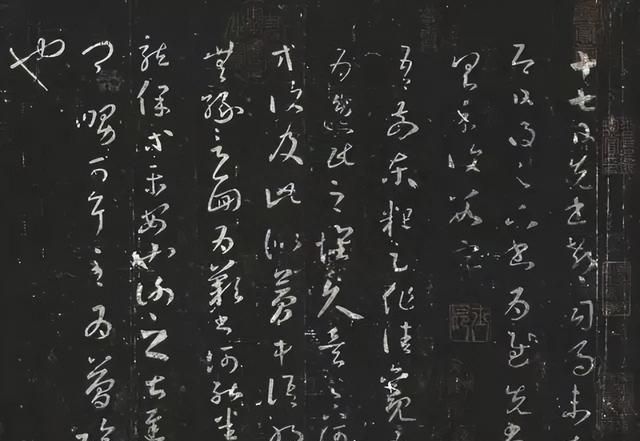 十七日先書郗司馬未
即日得足下書為慰先書
具示復數字
吾前東粗足作佳觀
為逸民之懷久矣足下何
方復及此似夢中語耶
無緣言面為歎書何能悉
龍保等平安也謝之甚遲
見卿舅可耳至為簡隔
也